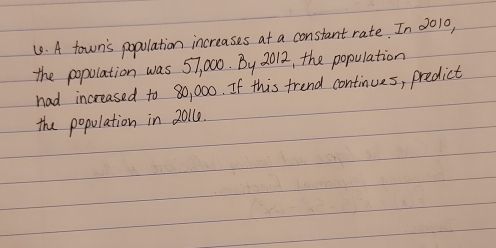 6. A town's population increases at a constant rate. In 2010,
the population was 57,000. By 2012, the population
had increased to 80,000. If this trend continues, predict
the population in 2016.